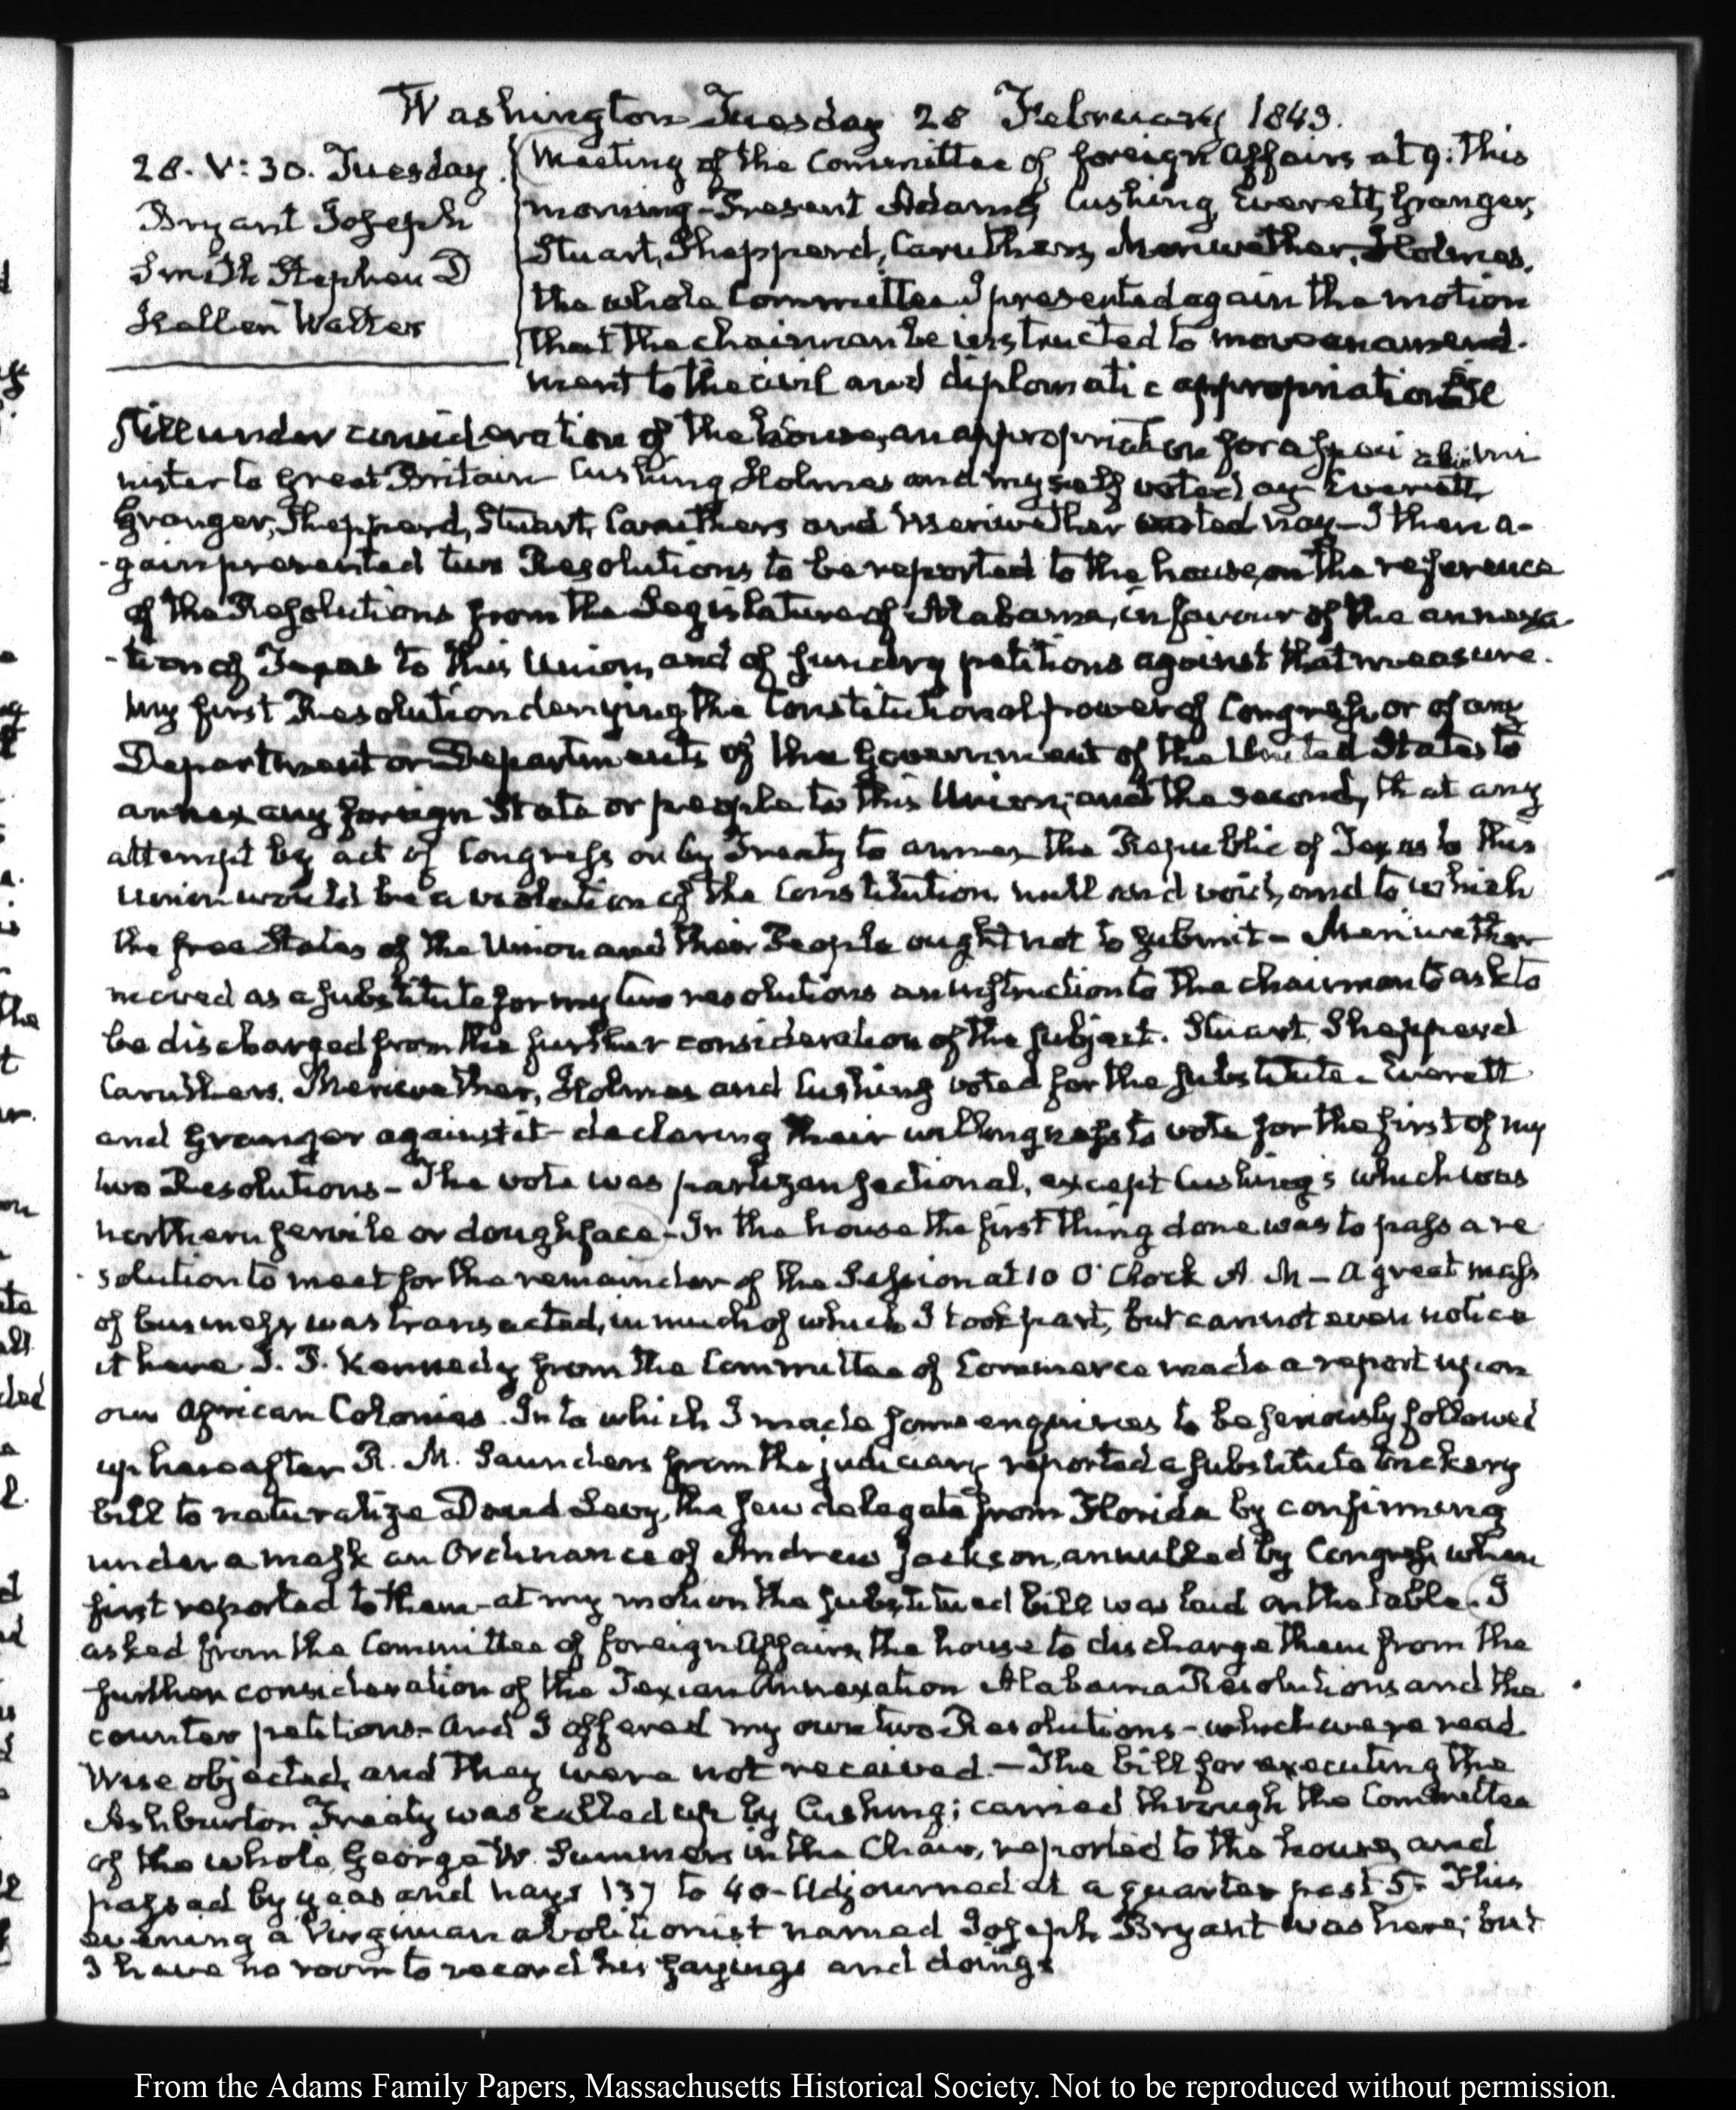 Washington Tuesday 28 February 1843.
28. V:30. Tuesday.
Bryant Joseph
Smith Stephen D
Hellen Walter
Meeting of the Committee of foreign Affairs at 9. this
morning - Present Adams, Cushing, Everett, Granger,
Stuart, Shepperd, Caruthers, Meriwether, Holmes.
the whole Committee I presented again the motion
that the chairman be instructed to move an amend-
ment to the civil and diplomatic appropriation bill
still under consideration of the house, an appropriation for a special mi
nister to Great Britain Cushing Holmes and myself voted ay Everett,
Granger, Shepperd, Stuart, Caruthers and Meriwether voted nay - I then a-
-gain presented two Resolutions to be reported to the house, on the reference
of the Resolutions from the Legislature of Alabama, in favour of the annexa-
-tion of Texas to this Union, and of sundry petitions against that measure.
My first Resolution denying the Constitutional power of Congress, or of any
Department or Departments of the Government of the United States to
annex any foreign State or people to this Union; and the second, that any
attempt by act of Congress or by Treaty to annex the Republic of Texas to this
Union would be a violation of the Constitution null and void, and to which
the free States of the Union and their People ought not to submit - Meriwether
moved as a substitute for my two resolutions an instruction to the chairman to ask to
be discharged from the further consideration of the subject. Stuart, Shepperd
Caruthers, Meriwether, Holmes and Cushing voted for the substitute - Everett
and Granger against it - declaring their willingness to vote for the first of my
two Resolutions - The vote was partizan sectional, except Cushing's which was
northern servile or doughface - In the house the first thing done was to pass a re
-solution to meet for the remainder of the Session at 10 O'Clock A. M - A great mass
of business was transacted, in much of which I took part, but cannot even notice
it here J. P. Kennedy from the Committee of Commerce made a report upon
our African Colonies. Into which I made some enquiries to be seriously followed
up hereafter R. M. Saunders from the judiciary reported a substitute trickery
bill to naturalize David Levy, the Jew delegate from Florida by confirming
under a mask an Ordinance of Andrew Jackson, annulled by Congress when
first reported to them - at my motion the substituted bill was laid on the table. I
asked from the Committee of foreign Affairs, the house to discharge them from the
further consideration of the Texian Annexation Alabama Resolutions and the
counter petitions - And I offered my own two Resolutions - which were read
Wise objected, and they were not received. - The bill for executing the
Ashburton Treaty was called up by Cushing; carried through the Committee
of the whole, George W. Summers in the Chair, reported to the house, and
passed by yeas and nays 137 to 40 - Adjourned at a quarter past 5. This
evening a Virginian abolitionist named Joseph Bryant was here; but
I have no room to record his sayings and doings
From the Adams Family Papers, Massachusetts Historical Society. Not to be reproduced without permission.